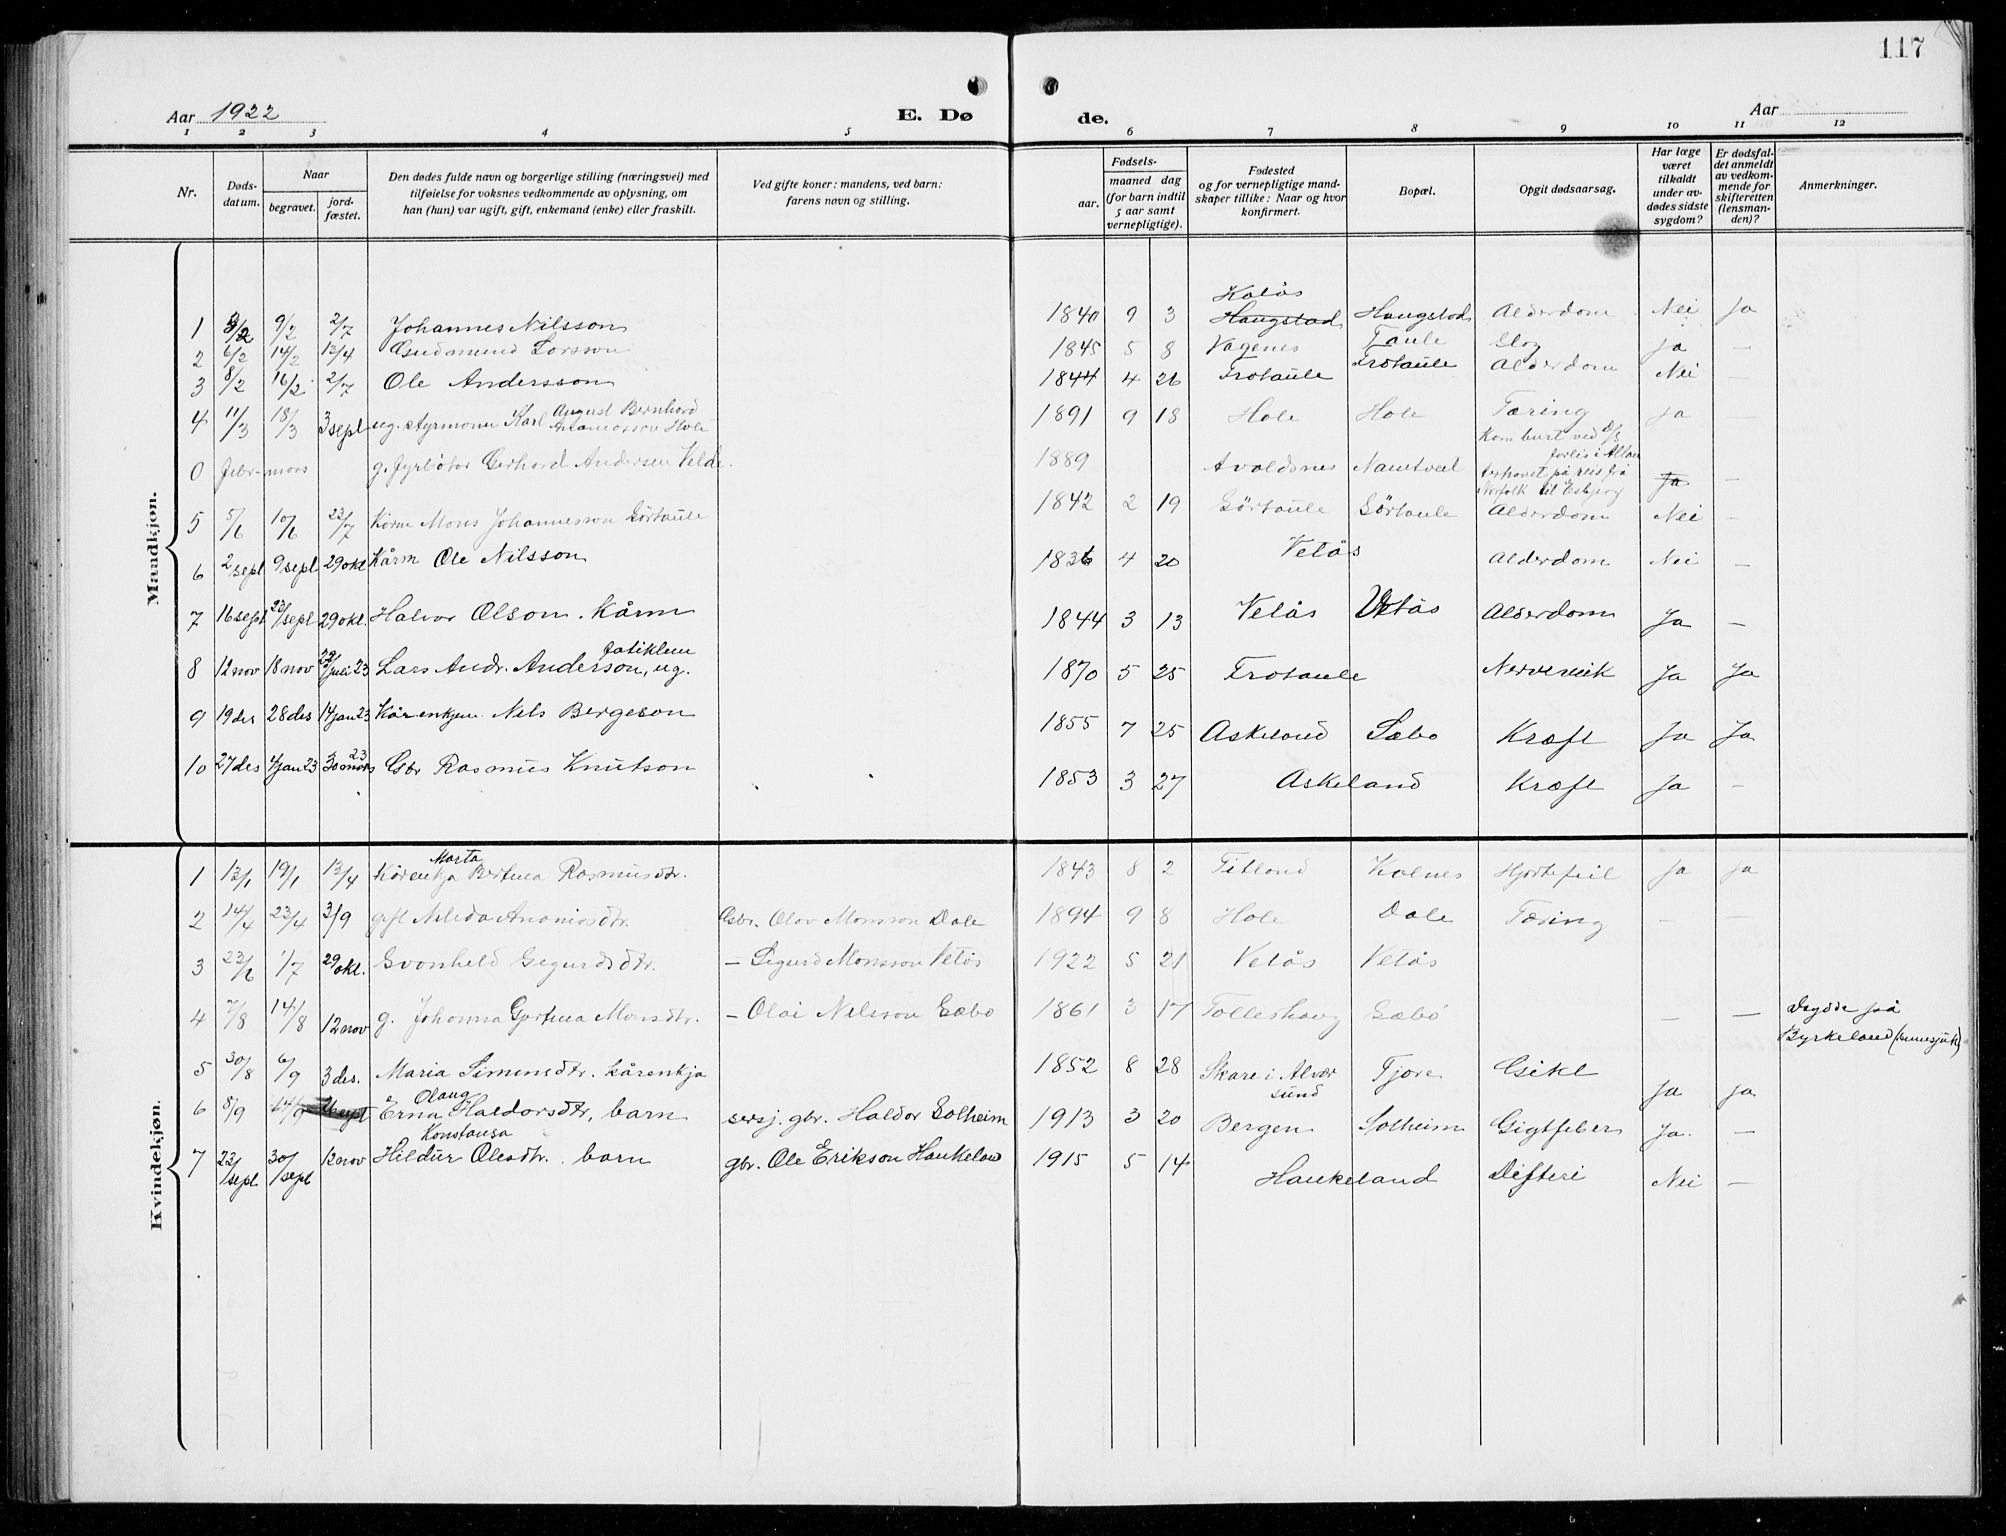 117
Aar 1922 E. Dø de. Aar
1 2 3 4 5 6 7 8 9 10 11 12
Nr.
Døds-
datum.
Naar
begravet.
jord-
fæstet.
Den dødes fulde navn og borgerlige stilling (næringsvei) med
tilføielse for voksnes vedkommende av oplysning, om
han (hun) var ugift, gift, enkemand (enke) eller fraskilt.
Ved gifte koner: mandens, ved barn:
farens navn og stilling.
Fødsels-
aar.
maaned dag
(for barn indtil
5 aar samt
vernepligtige).
Fødested
og for vernepligtige mand-
skaper tillike: Naar og hvor
konfirmert.
Bopæl.
Opgit dødsaarsag.
Har læge
været
tilkaldt
under av-
dødes sidste
sygdom?
Er dødsfal-
det anmeldt
av vedkom-
mende for
skifteretten
(lensman-
den)?
Anmerkninger.
Mandkjøn.
Kolås
1 3/2 9/2 2/7 Johannes Nilsson 1840 9 3 Haugstad Haugstad Alderdom Nei Ja
2 6/2 14/2 13/4 Gudmund Larsson 1845 5 8 Vagenes Taule Slag Ja —
3 8/2 16/2 2/7 Ole Andersson 1844 4 26 Frotaule Frotaule Alderdom Nei —
August Bernhard
4 11/3 18/3 3 sept ug. styrmann Karl Ananiasson Hole 1891 9 18 Hole Hole Tæring Ja —
Kom burt ved
forlis i Atlan
0 febr-mars g. fyrbøter Gerhard Andersen Velde. 1889 Avaldsnes Namtvedt terhavet på reis frå Ja —
Norfolk til Esbjerg
5 5/6 10/6 23/7 Kårm Mons Johannesson Sørtaule 1842 2 19 Sørtaule Sørtaule Alderdom Nei —
6 2/sept 9/sept 29 okt Kårm Ole Nilsson 1836 4 20 Vetås Alderdom Nei —
7 16 sept 23/sept 29 okt. Halvor Olson. Kårm 1844 3 13 Vetås Vetås Alderdom Ja —
fatiklem
8 12 nov 18 nov 22/juli 23 Lars Andr. Anderson, ug. 1870 5 25 Frotaule Nervesvik Ja Ja
9 19 des 28 des 14 jan 23 Kårenkjem. Nels Bergeson 1855 7 25 Askeland Sæbo Kræft Ja Ja
23
10 27 des 4/jan 23 30 mars Gbr Rasmus Knutson 1853 3 27 Askeland Kræft Ja —
Kvindekjøn.
Marta
1 13/1 19/1 13/4 Kårenkja Bertina Rasmusdtr. 1843 8 2 Titland Kolnes Hjertefeil Ja Ja
2 14/4 23/4 3/9 gift Nilida Ananiasdtr. Gbr. Olav Monsson Dale 1894 9 8 Hole Dale Tæring — —
3 23/6 1/7 29 okt. Svanhild Sigurdsdtr. — Sigurd Monsson Vetås 1922 5 21 Vetås Vetås
4 7/8 14/8 12 nov g. Johanna Gjertina Monsdtr. — Olai Nilsson Sæbo 1861 3 17 Tolleshaug Sæbø — — Døydde på
Byrkeland (sinnsjuk)
5 30/8 6/9 3 des. Maria Simensdtr. kårenkja 1852 8 28 Skare i Alvær Tjore Gikt Ja Ja
sund
Olaug
6 8/9 14/9 Erna Haldorsdtr, barn sersj. gbr. Haldor Solheim 1913 3 20 Bergen Solheim Gigtfeber Ja. —
Konstansa
7 23/sept 30/sept 12 nov Hildur Olesdtr. barn gbr. Ole Erikson Haukeland 1915 5 14 Haukeland Difteri Nei —